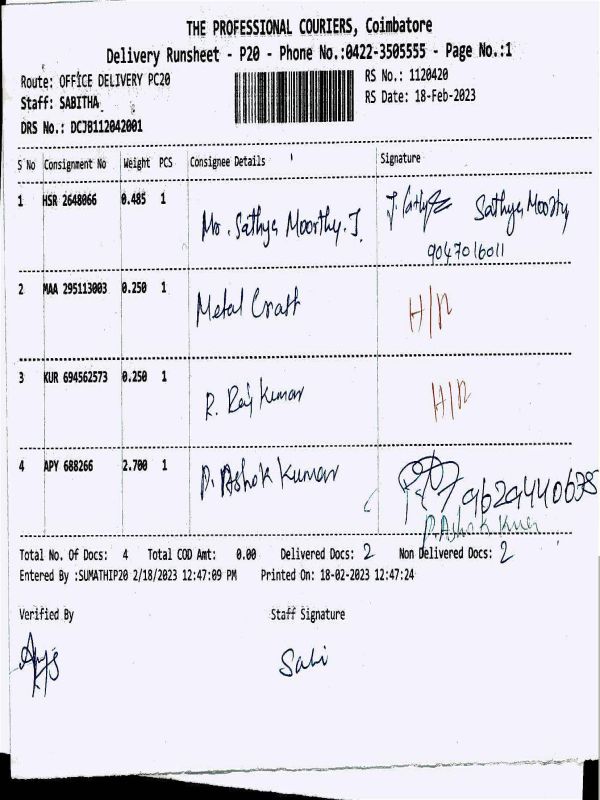 THE PROFESSIONAL COURIERS, Coimbatore
Delivery Runsheet - P20 - Phone No.:0422-3505555 - Page No.:1
Route: OFFICE DELIVERY PC20 RS No.: 1120420
Staff: SABITHA RS Date: 18-Feb-2023
DRS No.: DCJB112042001
S No Consignment No Weight PCS Consignee Details Signature
1 HSR 2648066 0.485 1 Mr. Sathya Moorthy. J. Sathya Moorthy
9047016011
2 MAA 295113003 0.250 1 Metal Craft H/N
3 KUR 694562573 0.250 1 R. Raj Kumar H/N
4 APY 688266 2.700 1 P. Ashok Kumar 9629440635
P. Ashok Kumar
Total No. Of Docs: 4 Total COD Amt: 0.00 Delivered Docs: 2 Non Delivered Docs: 2
Entered By :SUMATHIP20 2/18/2023 12:47:09 PM Printed On: 18-02-2023 12:47:24
Verified By Staff Signature
Sabi